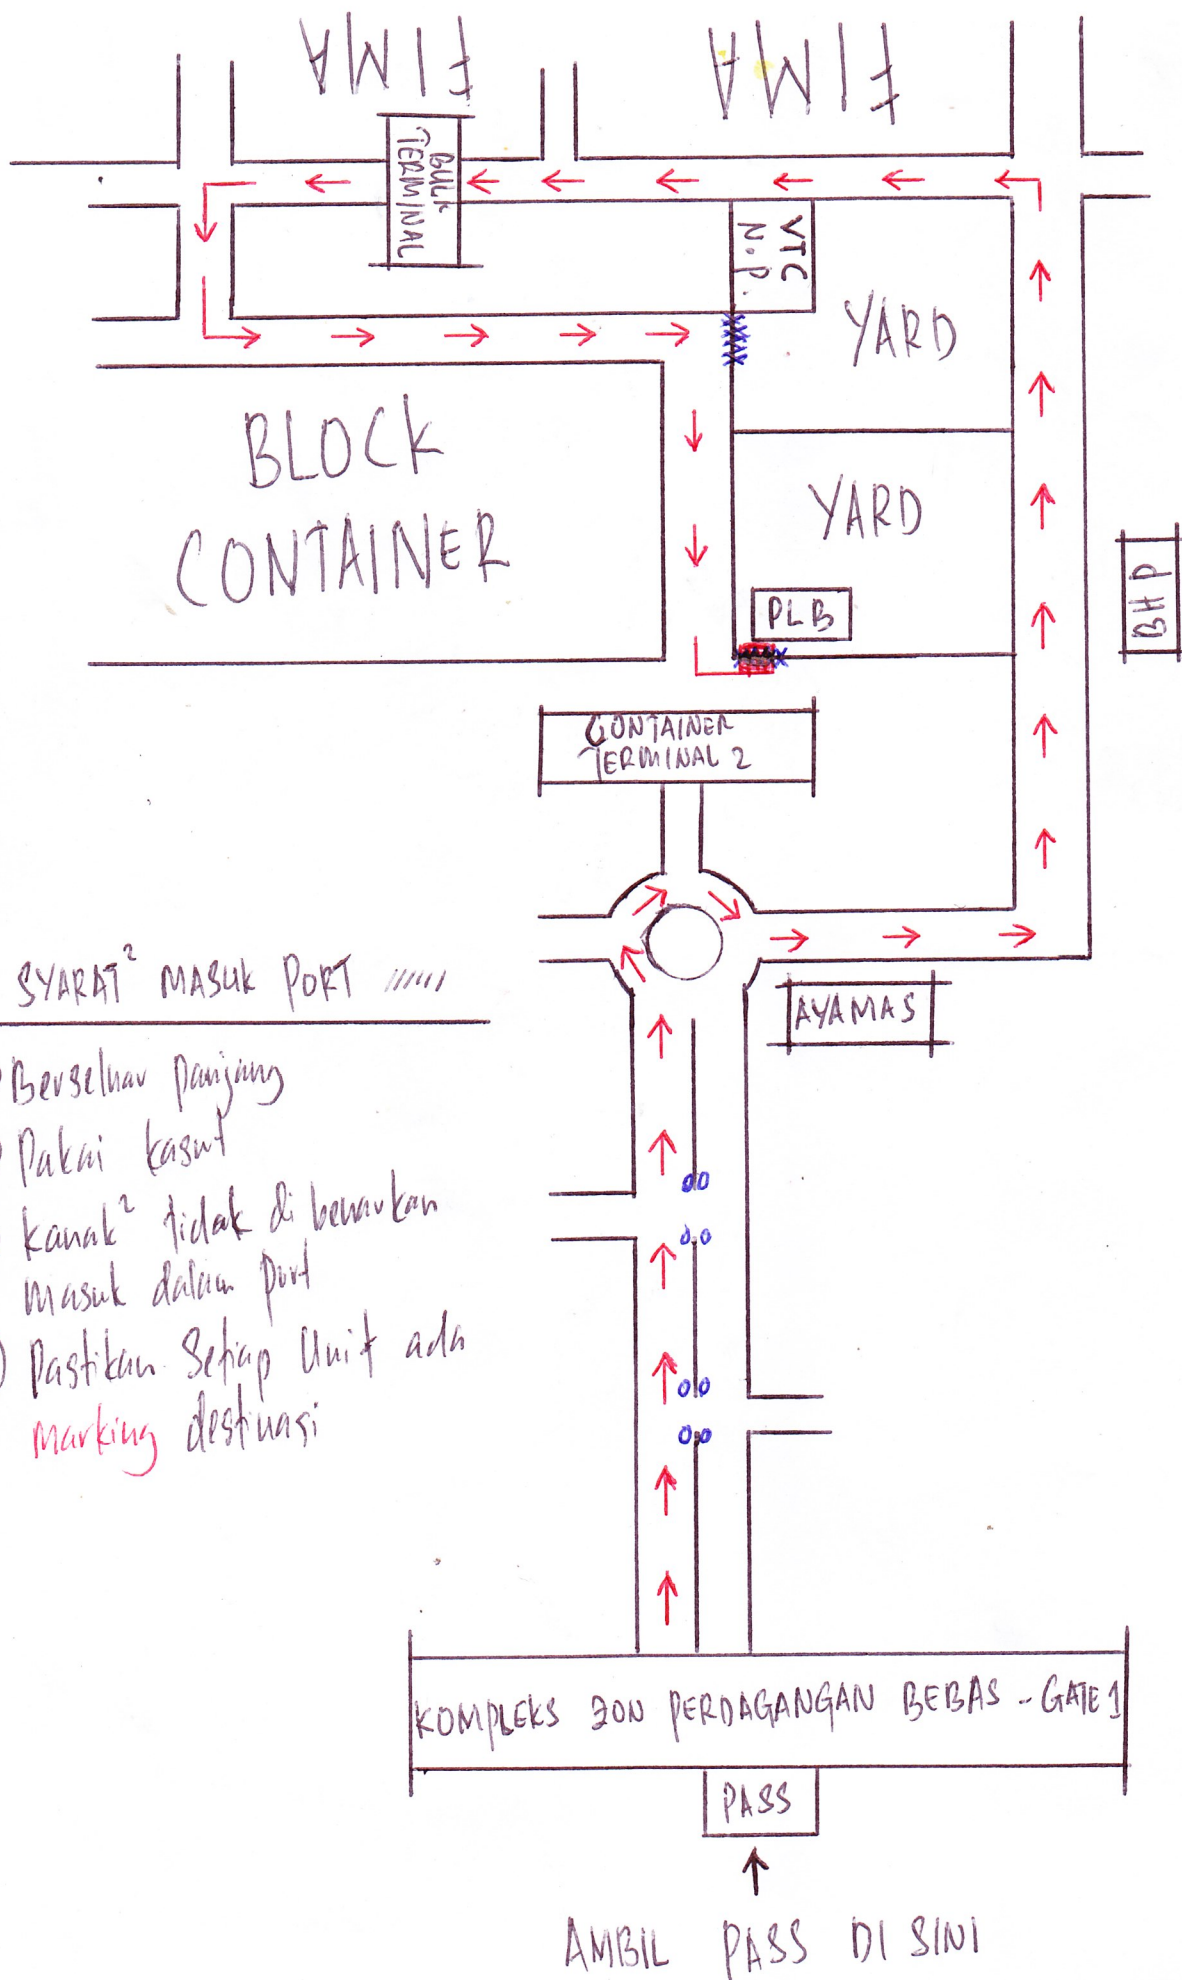 FIMA
FIMA
BULK
TERMINAL
VTC
N.P.
YARD
BLOCK
CONTAINER
YARD
BHP
PLB
CONTAINER
TERMINAL 2
AYAMAS
SYARAT² MASUK PORT
Berseluar Panjang
Pakai kasut
kanak² tidak di benarkan
masuk dalam port
) Pastikan Setiap Unit ada
marking destinasi
KOMPLEKS ZON PERDAGANGAN BEBAS - GATE 1
PASS
AMBIL PASS DI SINI